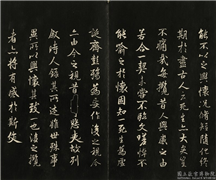 能不以之興懷況脩短隨化終
期於盡古人云死生亦大矣豈
不痛哉每攬昔人興感之由
若合一契未嘗不臨文嗟悼不
能喻之於懷固知一死生為虛
誕齊彭殤為妄作後之視今
亦由今之視昔悲夫故列
叙時人錄其所述雖世殊事
異所以興懷其致一也後之攬
者亦將有感於斯文
國立故宮博物院